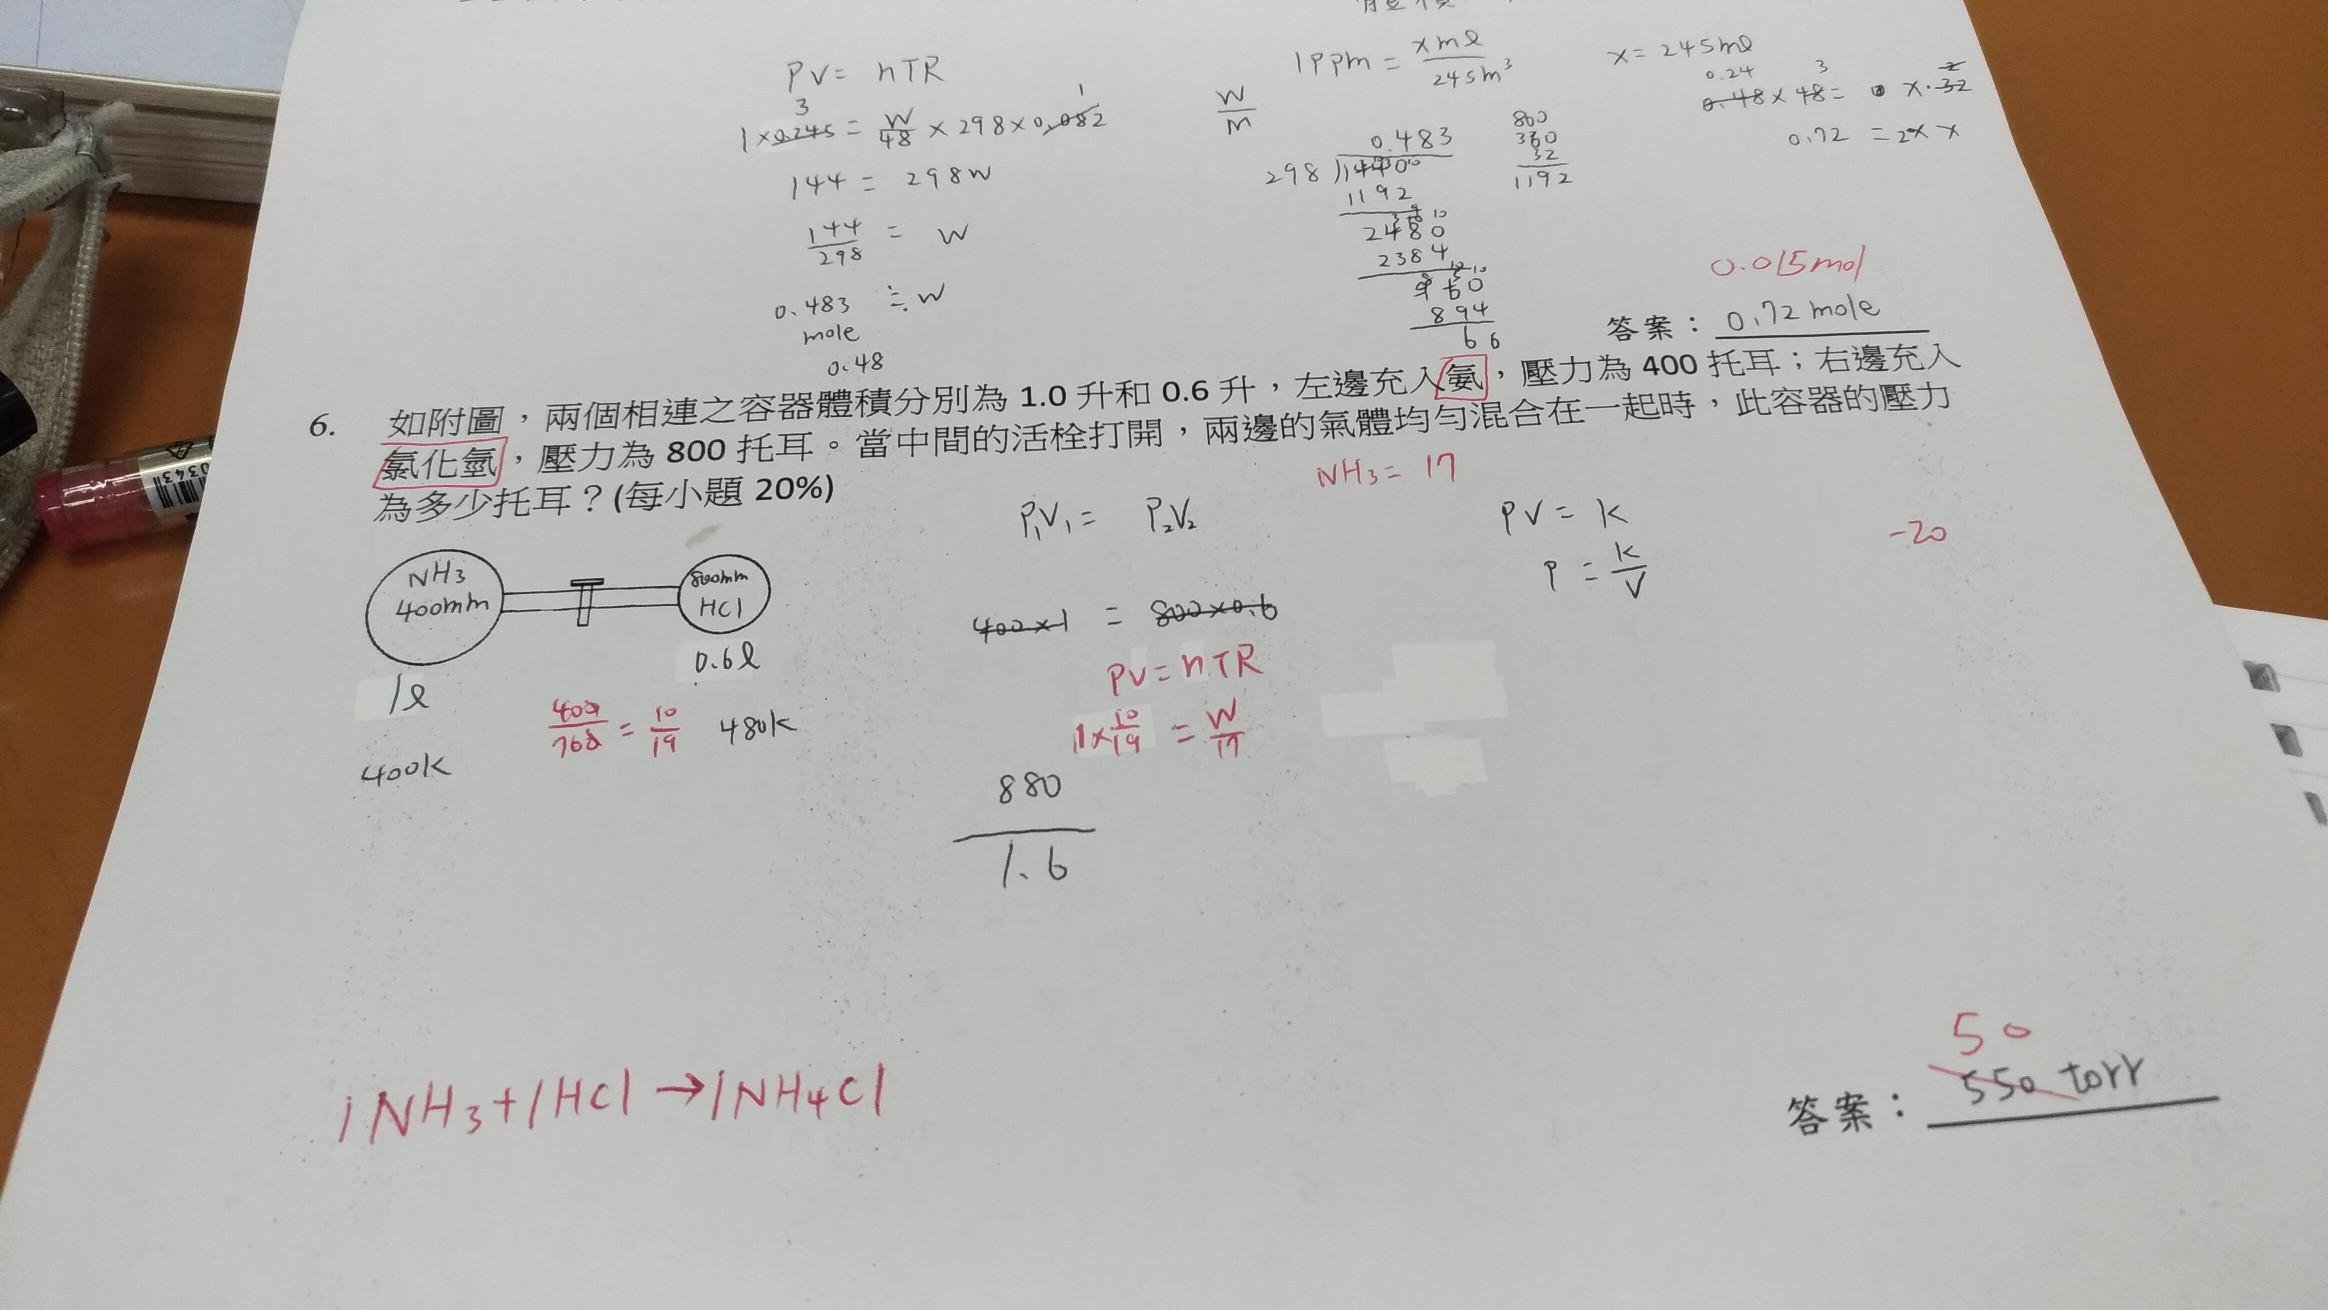 PV = nTR
3
1
1×0.245 = W/48 × 298×0.082
144 = 298W
144/298 = W
0.483 ≒ W
mole
0.48
W/M
1PPm = xml/245m³
x = 245ml
0.24
3
2
0.48×48= x·32
0.72 = 2x x
0.483
298 )144000
1192
2480
2384
960
894
66
860
360
32
1192
0.015mol
答案：0.72 mole
6. 如附圖，兩個相連之容器體積分別為 1.0 升和 0.6 升，左邊充入氨，壓力為 400 托耳；右邊充入
氯化氫，壓力為 800 托耳。當中間的活栓打開，兩邊的氣體均勻混合在一起時，此容器的壓力
為多少托耳？(每小題 20%)
NH3 = 17
P₁V₁ = P₂V₂
PV = K
P = K/V
-20
NH3
400mm
800mm
HCl
400×1 = 800×0.6
0.6ℓ
1ℓ
PV = nTR
400/760 = 10/19
480K
1×10/19 = W/17
400K
880
1.6
1NH3+1HCl→1NH4Cl
50
答案：550 torr